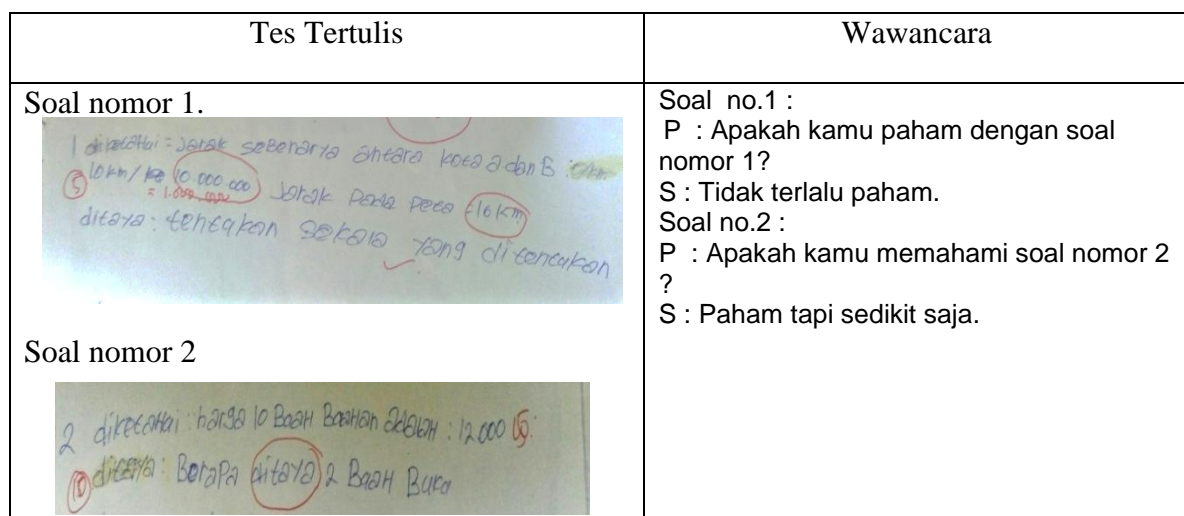 Tes Tertulis
Wawancara
Soal nomor 1.
1 diketaHui = Jarak sebenarya antara kota a dan B :
5 10 km / 10.000.000 Jarak Pada Peta = 10 Km
= 1.000.000
ditaya : tentukan sekara yang ditentukan
Soal nomor 2
2 diketaHui : harga 10 BuaH BoaHan adalaH : 12.000 15.
10 ditaya : Borapa ditaya 2 BuaH Buku
Soal no.1 :
P : Apakah kamu paham dengan soal
nomor 1?
S : Tidak terlalu paham.
Soal no.2 :
P : Apakah kamu memahami soal nomor 2
?
S : Paham tapi sedikit saja.